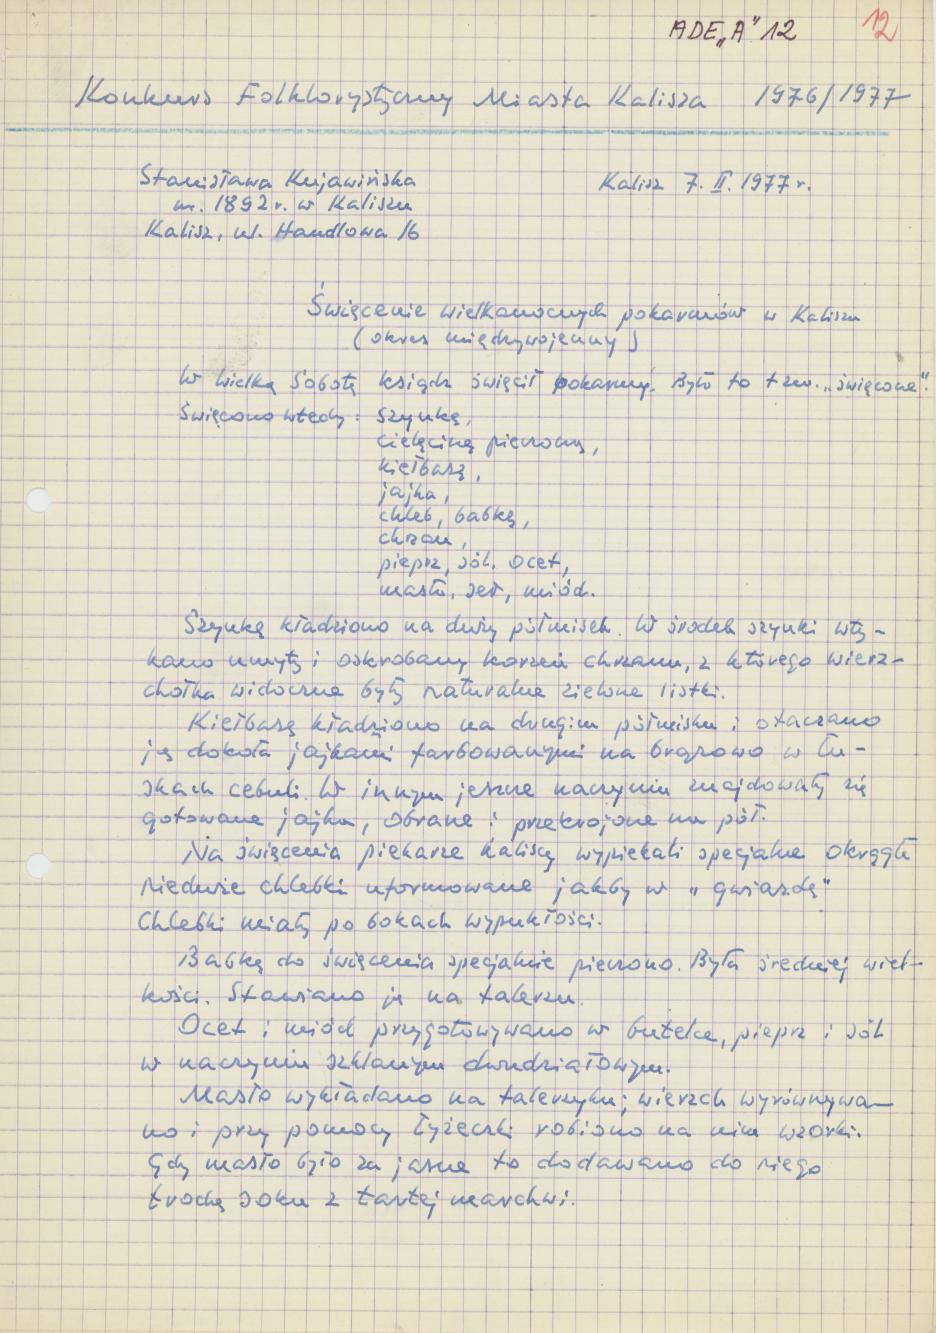 ADE„A” 12
12
Konkurs Folklorystyczny Miasta Kalisza 1976/1977
Stanisława Kujawińska
ur. 1892 r. w Kaliszu
Kalisz, ul. Handlowa 16
Kalisz 7. II. 1977 r.
Święcenie wielkanocnych pokarmów w Kaliszu
(okres międzywojenny)
W wielką Sobotę ksiądz święcił pokarmy. Było to tzw. „święcone”.
Święcono wtedy: szynkę,
cielęcinę pieczoną,
kiełbasę,
jajka,
chleb, babkę,
chrzan,
pieprz, sól. ocet,
masło, ser, miód.
Szynkę kładziono na duży półmisek. W środek szynki wty-
kano umyty i oskrobany korzeń chrzanu, z którego wierz-
chołka widoczne były naturalne zielone listki.
Kiełbasę kładziono na drugim półmisku i otaczano
ją dokoła jajkami farbowanymi na brązowo w łu-
skach cebuli. W innym jeszcze naczyniu znajdowały się
gotowane jajka, obrane i przekrojone na pół.
Na święcenia piekarze kaliscy wypiekali specjalne okrągłe
nieduże chlebki uformowane jakby w „gwiazdę”
Chlebki miały po bokach wypukłości.
Babkę do święcenia specjalnie pieczono. Była średniej wiel-
kości. Stawiano ją na talerzu.
Ocet i miód przygotowywano w butelce, pieprz i sól
w naczyniu szklanym dwudziałowym.
Masło wykładano na talerzyku; wierzch wyrównywa-
no i przy pomocy łyżeczki robiono na nim wzorki.
Gdy masło było za jasne to dodawano do niego
trochę soku z tartej marchwi.